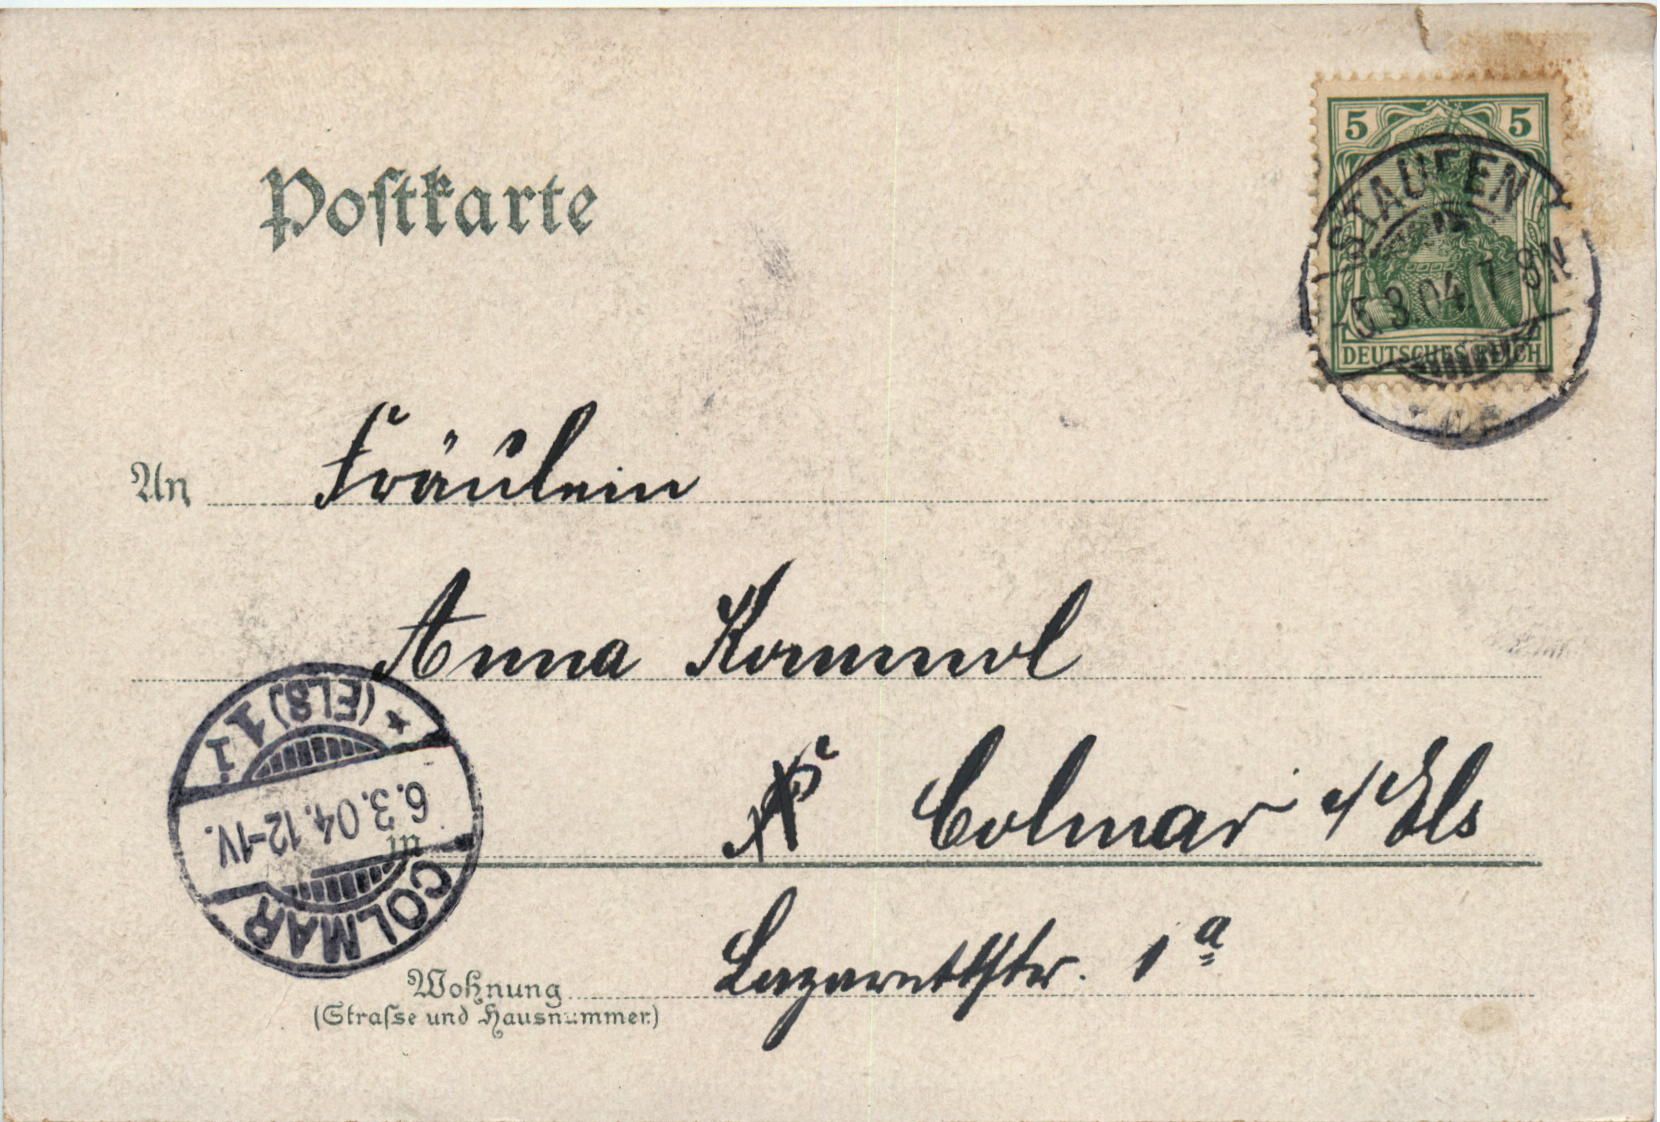 5 5
STAUFEN
5 3 04. 7-8N
DEUTSCHES REICH
Postkarte
An Fräulein
Anna Kommel
(ELS) 1 i
6.3.04.12-1V.
COLMAR
in Colmar i/Els
Wohnung Lazarettstr. 1a
(Strasse und Hausnummer)